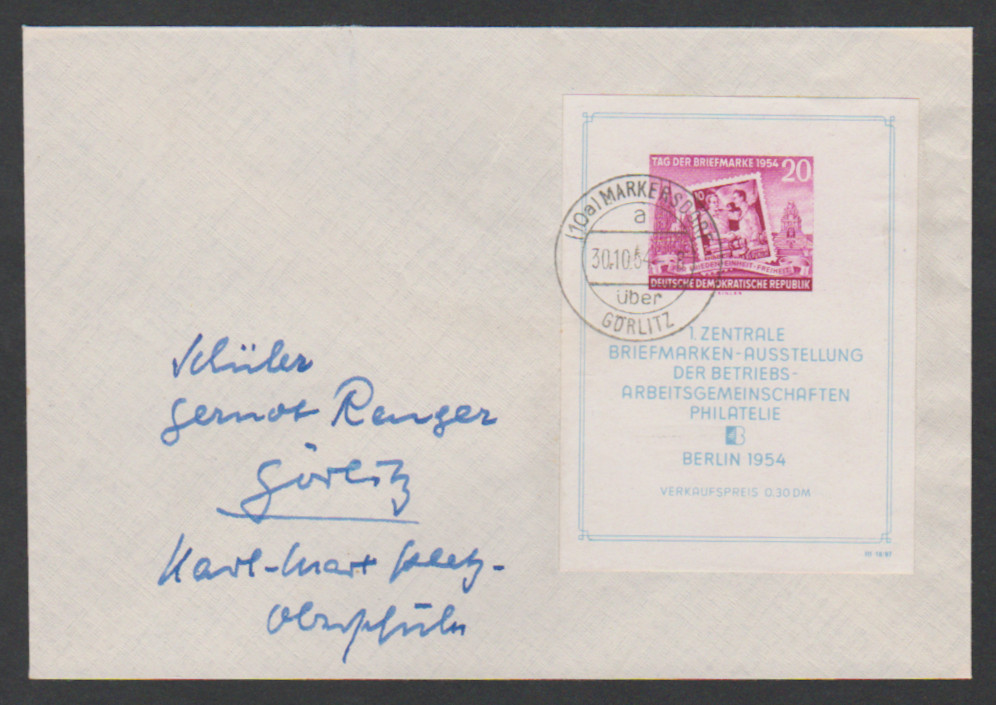 TAG DER BRIEFMARKE 1954 20
10
FRIEDEN·EINHEIT·FREIHEIT
DEUTSCHE DEMOKRATISCHE REPUBLIK
(10a) MARKERSDORF
a
30.10.54
über
GÖRLITZ
1. ZENTRALE
BRIEFMARKEN-AUSSTELLUNG
DER BETRIEBS-
ARBEITSGEMEINSCHAFTEN
PHILATELIE
BERLIN 1954
VERKAUFSPREIS 0,30 DM
Schüler
Gernot Renger
Görlitz
Karl-Marx Platz-
Oberschule